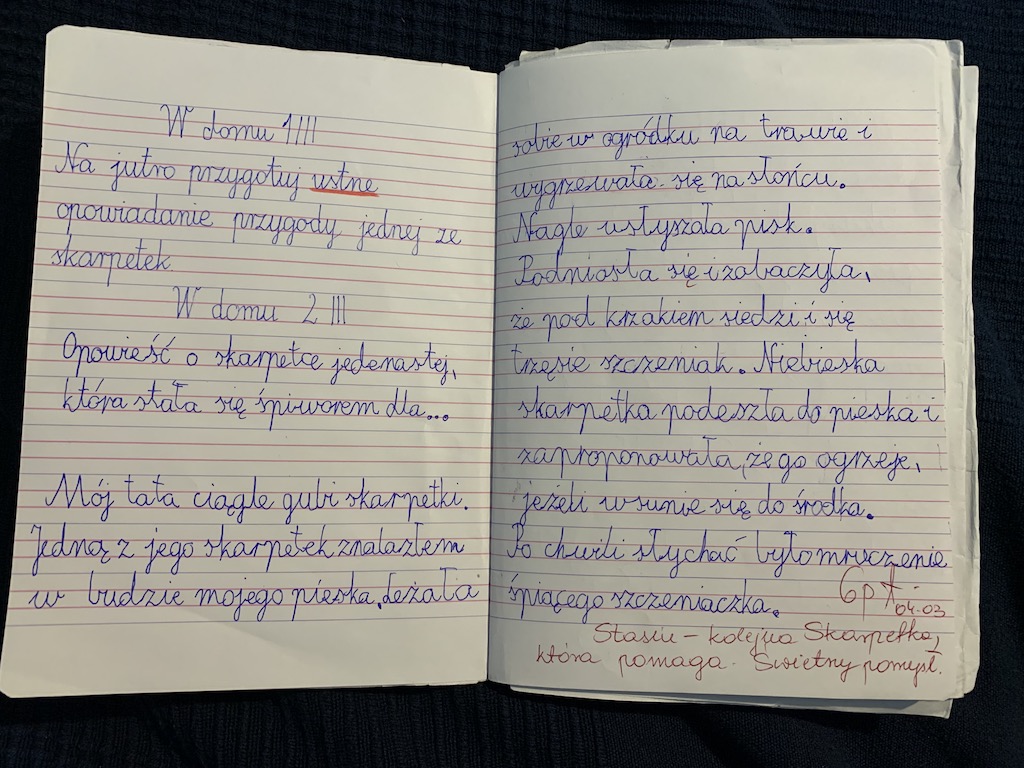 W domu 1 III
Na jutro przygotuj ustne
opowiadanie przygody jednej ze
skarpetek.
W domu 2 III
Opowieść o skarpetce jedenastej,
która stała się śpiworem dla...
Mój tata ciągle gubi skarpetki.
Jedną z jego skarpetek znalazłem
w budzie mojego pieska. Leżała
sobie w ogródku na trawie i
wygrzewała się na słońcu.
Nagle usłyszała pisk.
Podniosła się i zobaczyła,
że pod krzakiem siedzi i się
trzęsie szczeniak. Niebieska
skarpetka podeszła do pieska i
zaproponowała, że go ogrzeje,
jeżeli wsunie się do środka.
Po chwili słychać było mruczenie
śpiącego szczeniaczka.
6pkt.
04.03
Stasiu - kolejna Skarpetka,
która pomaga. Świetny pomysł.